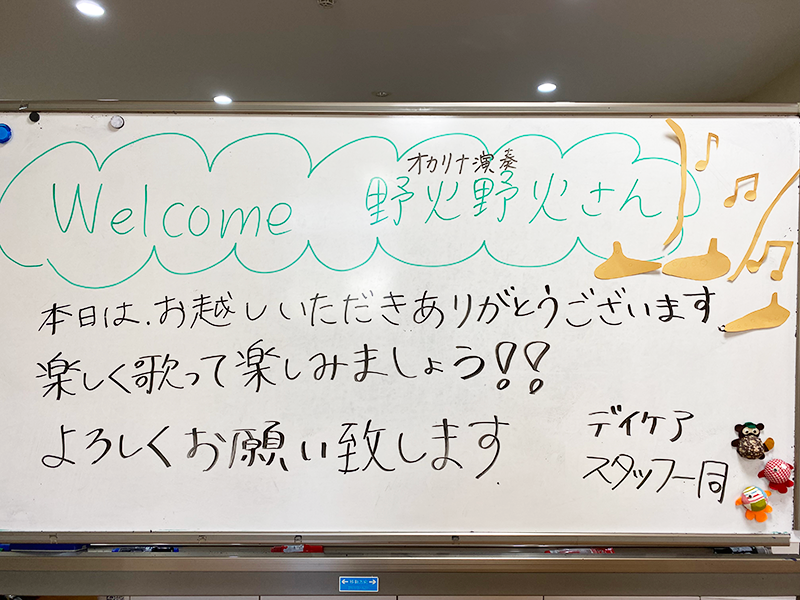 オカリナ演奏
Welcome 野火野火さん
本日は、お越しいただきありがとうございます。
楽しく歌って楽しみましょう!!
よろしくお願い致します
デイケア
スタッフ一同